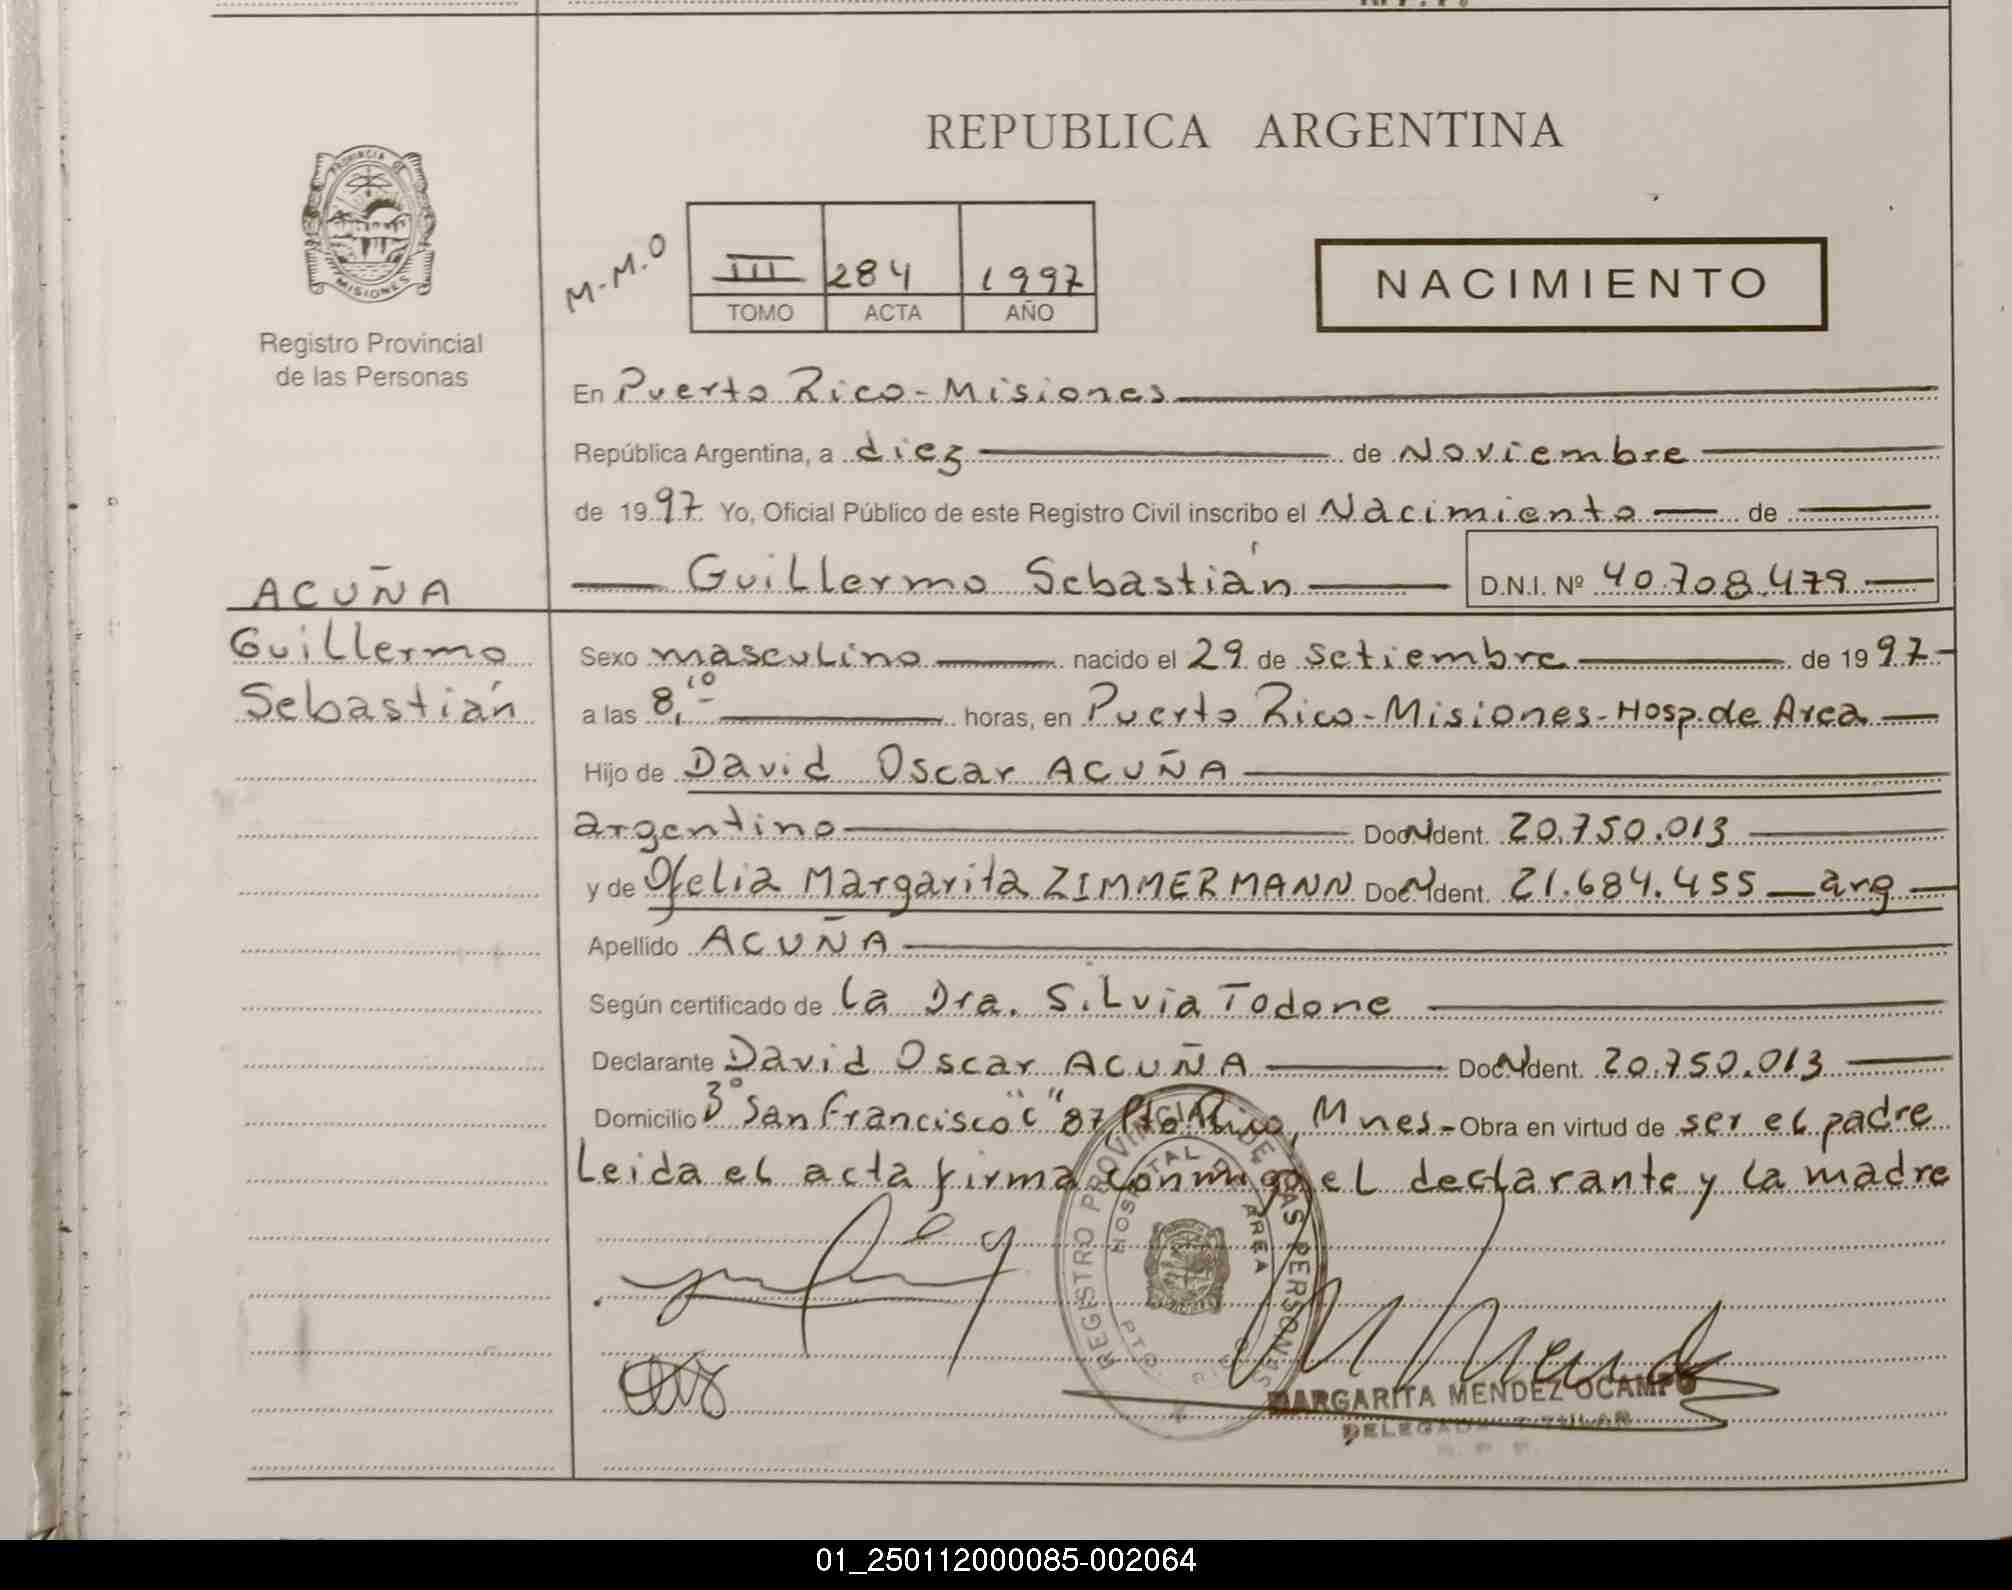 REPUBLICA ARGENTINA
PROVINCIA DE
MISIONES
Registro Provincial
de las Personas
M-M.O
III 284 1997
TOMO ACTA AÑO
NACIMIENTO
En Puerto Rico - Misiones
República Argentina, a diez de Noviembre
de 1997 Yo, Oficial Público de este Registro Civil inscribo el Nacimiento de
Guillermo Sebastián D.N.I. Nº 40.708.479
ACUÑA
Guillermo
Sebastián
Sexo masculino nacido el 29 de setiembre de 1997
a las 8,10 horas, en Puerto Rico - Misiones - Hosp. de Area
Hijo de David Oscar ACUÑA
argentino Doc. N Ident. 20.750.013
y de Ofelia Margarita ZIMMERMANN Doc. N Ident. 21.684.455 arg
Apellido ACUÑA
Según certificado de la Dra. Silvia Todone
Declarante David Oscar ACUÑA Doc. N Ident. 20.750.013
Domicilio 3° San Francisco "C" 87, Pto Rico, Mnes - Obra en virtud de ser el padre
Leida el acta firma conmigo el declarante y la madre
REGISTRO PROVINCIAL DE LAS PERSONAS
HOSPITAL DE AREA
PTO. RICO
MARGARITA MENDEZ OCAMPO
DELEGADA TITULAR
01_250112000085-002064